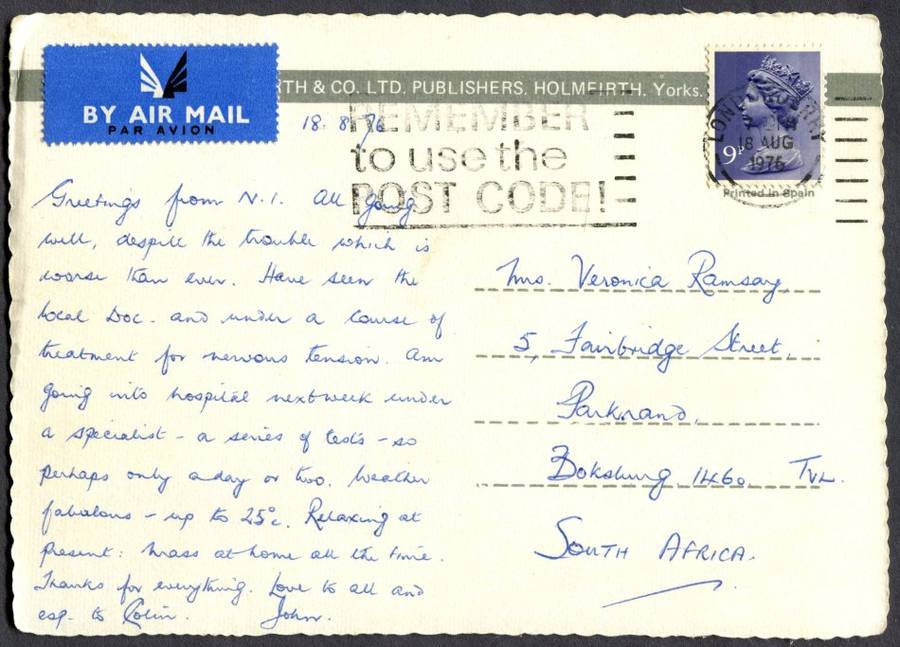 BY AIR MAIL
PAR AVION
RTH & CO. LTD. PUBLISHERS. HOLMFIRTH. Yorks.
18. 8. 76
REMEMBER
to use the
POST CODE!
LONDONDERRY
18 AUG
1976
9P
Printed in Spain
Greetings from N.I. All going
well, despite the trouble which is
worse than ever. Have seen the
local Doc. and under a course of
treatment for nervous tension. Am
going into hospital next week under
a specialist - a series of tests - so
perhaps only a day or two. Weather
fabulous - up to 25°c. Relaxing at
present: Mass at home all the time.
Thanks for everything. Love to all and
esp. to Colin. John.
Mrs. Veronica Ramsay,
5, Fairbridge Street,
Parkrand,
Boksburg 1460 TVL.
SOUTH AFRICA.